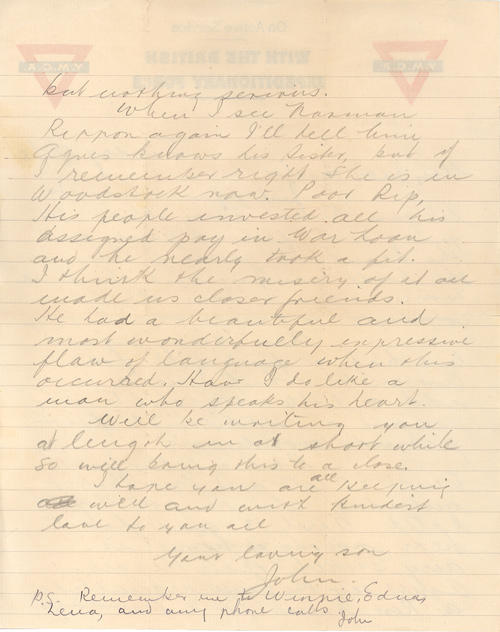 but nothing serious.
When I see Norman
Rippon again I'll tell him
Agnes knows his sister, but if
I remember right she is in
Woodstock now. Poor Rip,
His people invested all his
assigned pay in War Loan
and he nearly took a fit.
I think the misery of it all
made us closer friends.
He had a beautiful and
most wonderfully expressive
flow of language when this
occurred. How I do like a
man who speaks his heart.
Will be writing you
at length in a short while
so will bring this to a close.
I hope you are all keeping
well and with kindest
love to you all
Your loving son
John.
P.S. Remember me to Winnie, Edna,
Lena, and any phone calls. John